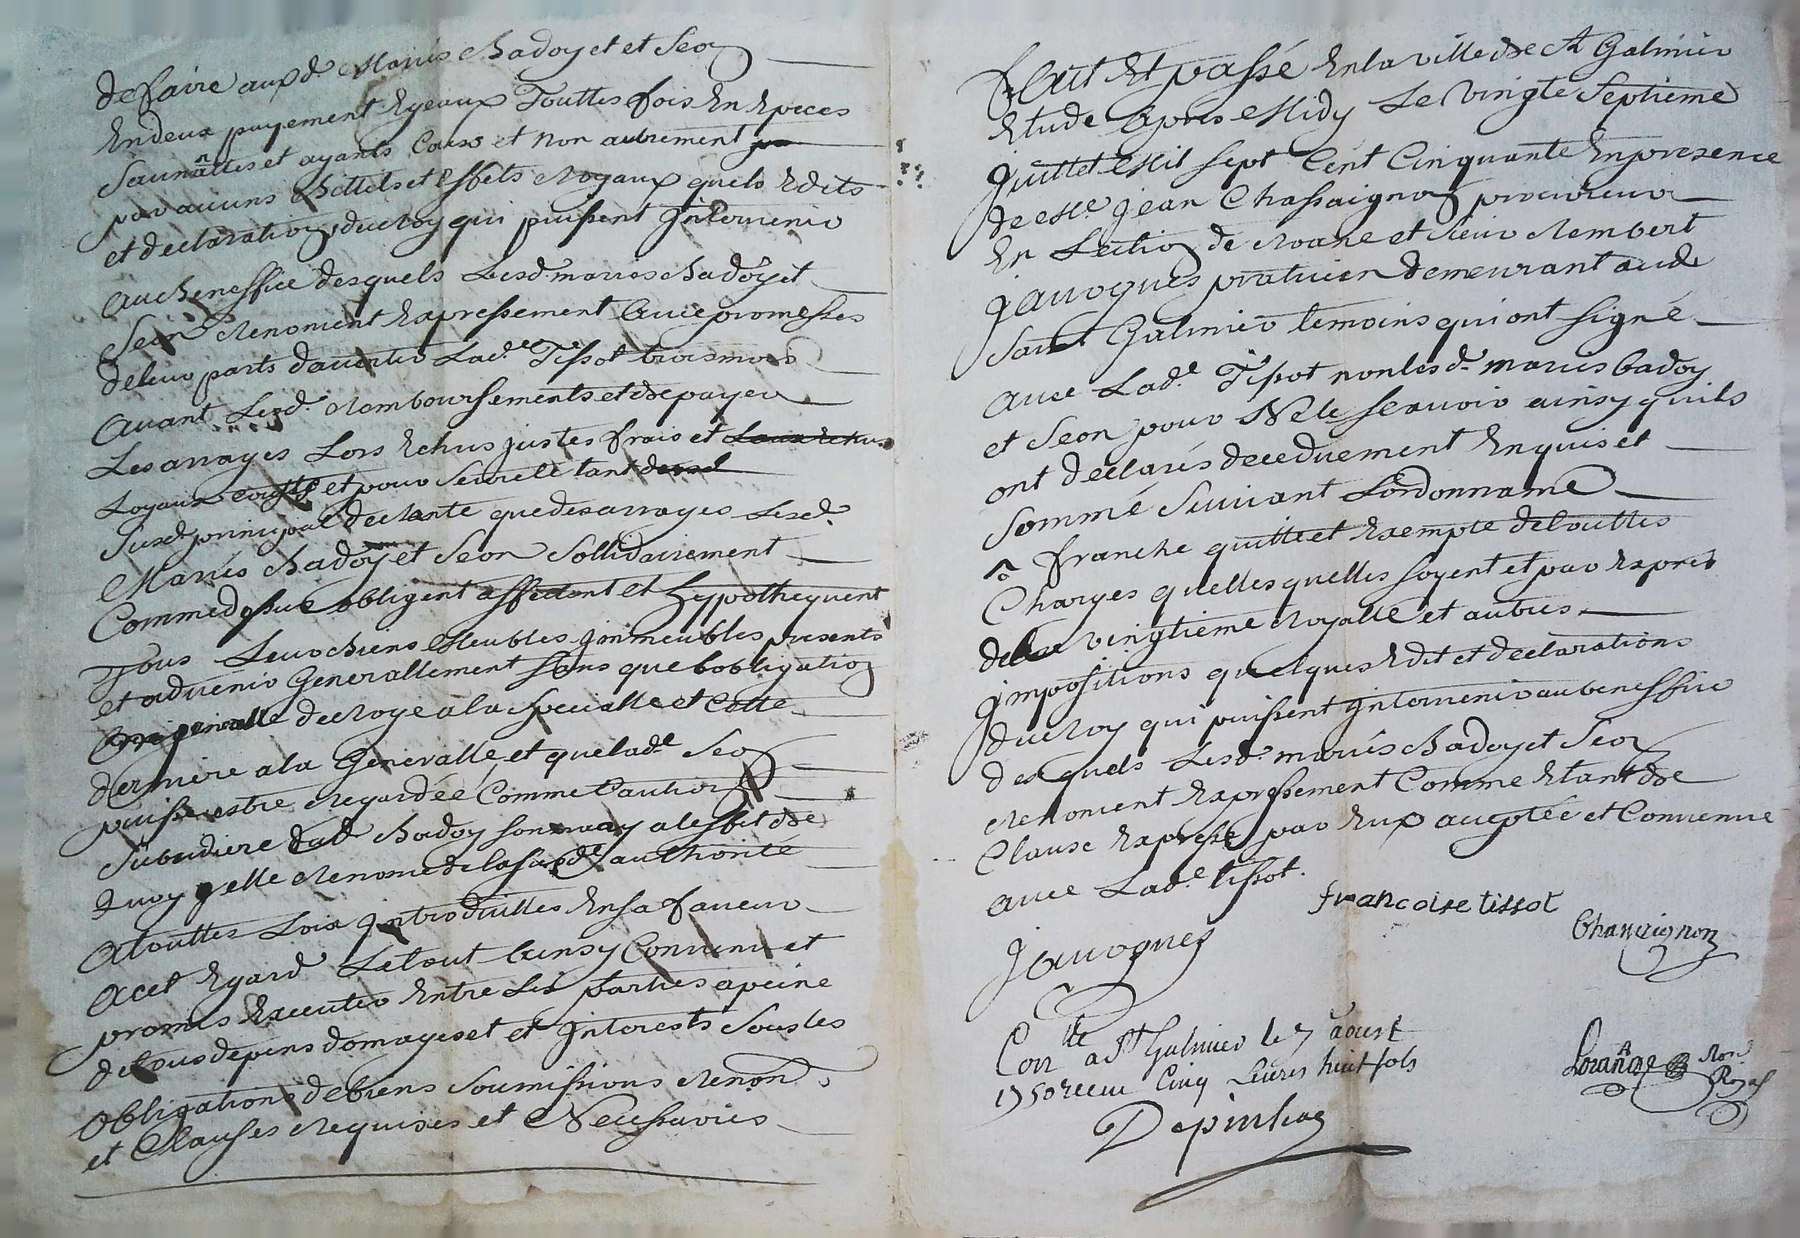 de faire auxd. Mariés Badoy et et Seon
En deux payement Egeaux Touttes fois En Epeces
Sonnattes et ayants Cours et non autrement
par aucuns Billets et Effets Royaux quels Edits
et declarations du Roy qui puissent Intervenir
au Beneffice desquels Lesd. mariés Badoy et
Seon Renoncent Expressement avec promesses
de leur parts d'avertir Lad.e Tissot trois mois
avant Lesd. Remboursements et de payer
Les arrages Lors Echus justes frais et
Loyaux cousts et pour Seureté tant
Susd principal de rante que des arrages Lesd.
Mariés Badoy et Seon Sollidairement
Comme dessus obligent affectent et hypothequent
Tous Leurs biens Meubles Immeubles presents
et advenir Generallement sans que l'obligation
generalle deroge à la Specialle et Cette
derniere a la Generalle et que lad.e Seon
puisse estre Regardée Comme Caution
Subsidiere dud. Badoy son mary a l'effet de
quoy elle Renonce de lasusd.e authorité
a touttes Loix Introduittes En sa faveur
a cet Egard Le tout ainsy Convenu et
promis Executer Entre Les parties a peine
de tous depens domages et Interests Sous les
obligations de biens Soumissions Renon.
et Clauses Requises et Necessaires
fait Et passé En la ville de St Galmier
Etude apres Midy Le vingte Septieme
Juillet Mil sept Cent Cinquante En presence
de Me. Jean Chassaignon procureur
En Lection de Roane et Sieur Rembert
Javogues praticien demeurant aud.
Saint Galmier temoins qui ont signé
avec Lad.e Tissot non lesd. mariés Badoy
et Seon pour Ne le scavoir ainsy quils
ont declarés de ce duement Enquis et
sommé Suivant Lordonnance
franche quitte et Exempte de touttes
Charges quelles quelles soyent et par Exprés
de la vingtieme Royalle et autres
Impositions quelques Edit et declarations
du Roy qui puissent Intervenir au beneffice
desquels Lesd. mariés Badoy et Seon
Renoncent Expressement Comme Etant de
Clause Expresse par Eux acceptée et Convenue
avec Lad.e tissot.
francoise tissot
Chassaignon
Javogues
Con.lle a St Galmier le 7 aoust
1750 receu Cinq Livres huit sols
Depinhac
Lorange
Roy.al